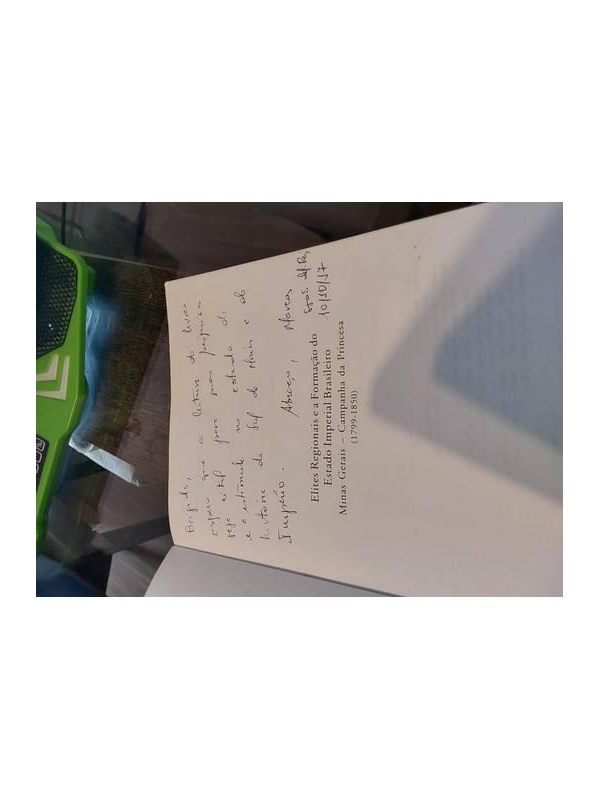 espero que a leitura do livro
seja útil para suas pesquisas
e o estimule no estudo da
história do Sul de Minas e do
Império.
Abraço, Marcos
10/10/17
Elites Regionais e a Formação do
Estado Imperial Brasileiro
Minas Gerais – Campanha da Princesa
(1799-1850)